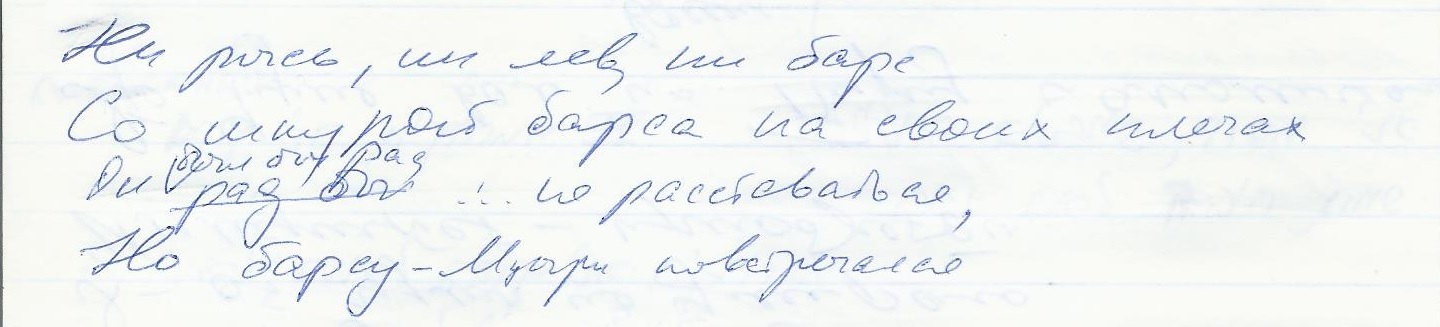 Ни рысь, ни лев, ни барс
Со шкурой барса на своих плечах
был бы рад
Он рад был ... не расставаться,
Но барсу - Мцыри повстречался